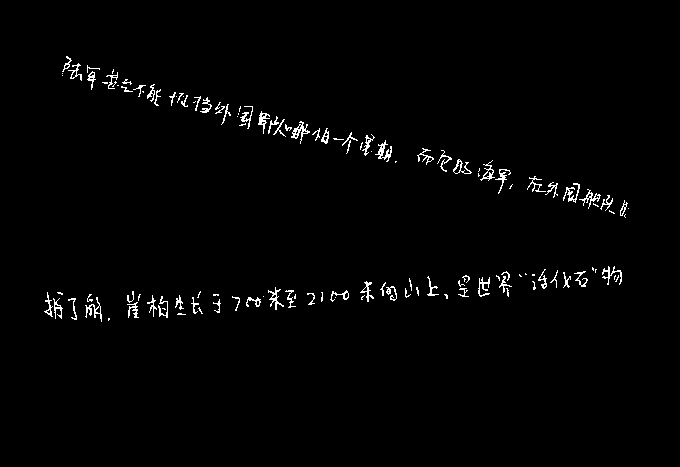 陆军甚至不能抵挡外国军队哪怕一个星期，而它的海军，在外国舰队的
据了解，崖柏生长于700米至2100米的山上，是世界“活化石”物